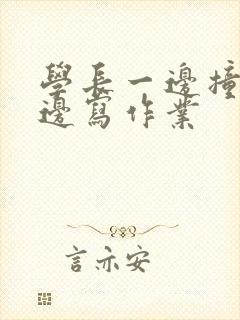 學長一邊撞
邊寫作業
言亦安